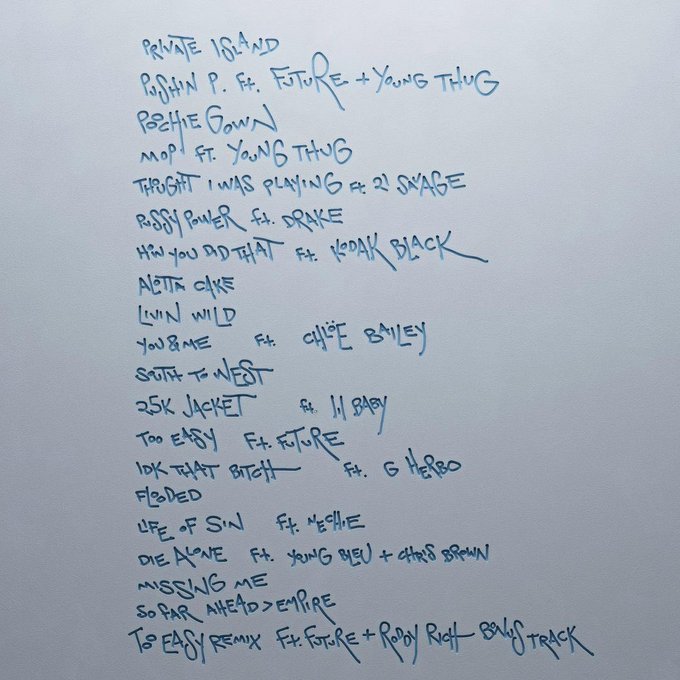 PRIVATE ISLAND
PUSHIN P. Ft. FUTURE + YOUNG THUG
POOCHIE GOWN
MOP Ft. YOUNG THUG
THOUGHT I WAS PLAYING Ft. 21 SAVAGE
PUSSY POWER Ft. DRAKE
HOW YOU DID THAT Ft. KODAK BLACK
ALOTTA CAKE
LIVIN WILD
YOU & ME Ft. CHLÖE BAILEY
SOUTH TO WEST
25K JACKET Ft. lil BABY
TOO EASY Ft. FUTURE
IDK THAT BITCH Ft. G HERBO
FLOODED
LIFE OF SIN Ft. NECHIE
DIE ALONE Ft. YOUNG BLEU + CHRIS BROWN
MISSING ME
SO FAR AHEAD > EMPIRE
TOO EASY REMIX Ft. FUTURE + RODDY RICH BONUS TRACK